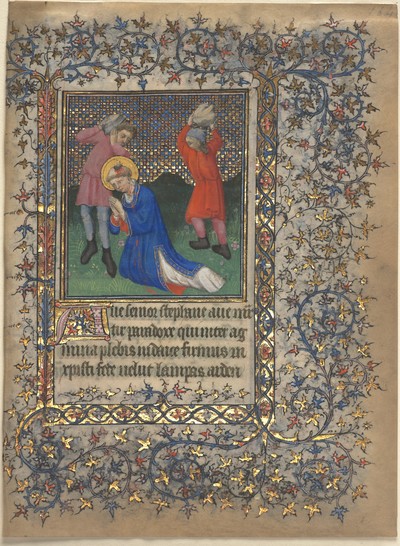 Aue senior stephane aue mr̄
tir paradoxe qui inter ag
mina plebis iudaice firmus in
xpisti fide uelut lampas arden